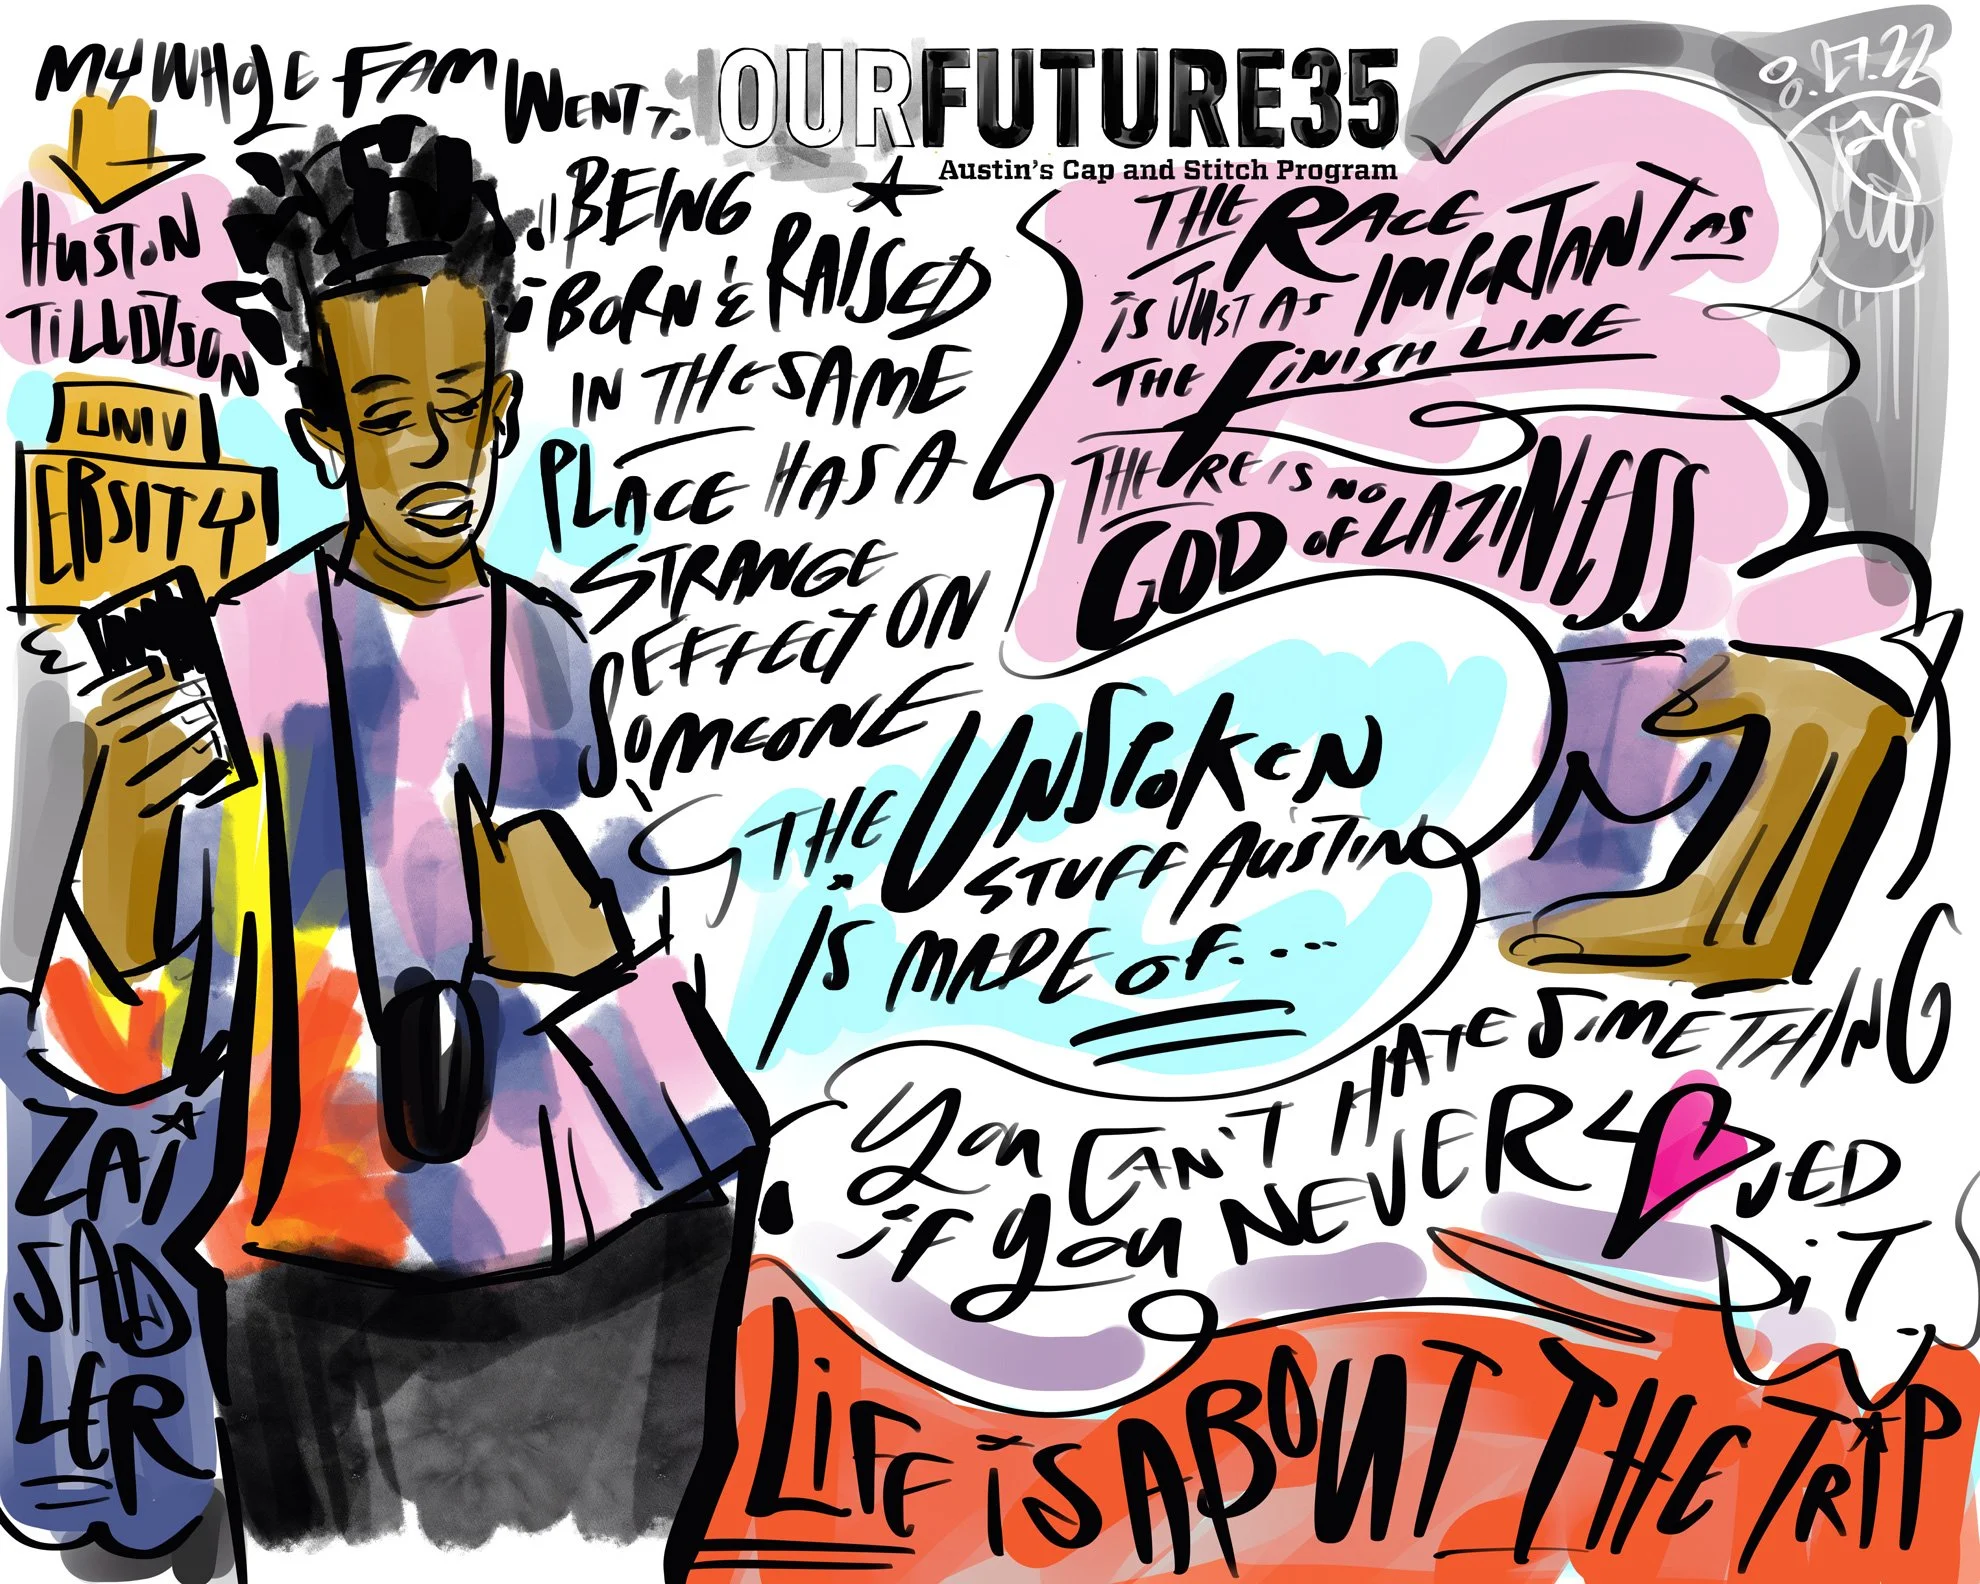 OURFUTURE35
Austin's Cap and Stitch Program
8.27.22
MY WHOLE FAM
WENT TO
HUSTON
TILLOTSON
UNIV
ERSITY
BEING
BORN & RAISED
IN THE SAME
PLACE HAS A
STRANGE
EFFECT ON
SOMEONE
THE RACE
IS JUST AS IMPORTANT AS
THE FINISH LINE
THERE IS NO
GOD OF LAZINESS
THE UNSPOKEN
STUFF AUSTIN
IS MADE OF...
YOU CAN'T HATE SOMETHING
if you NEVER LOVED
iT
ZAi
SAD
LER
LiFE iS ABOUT THE TRiP